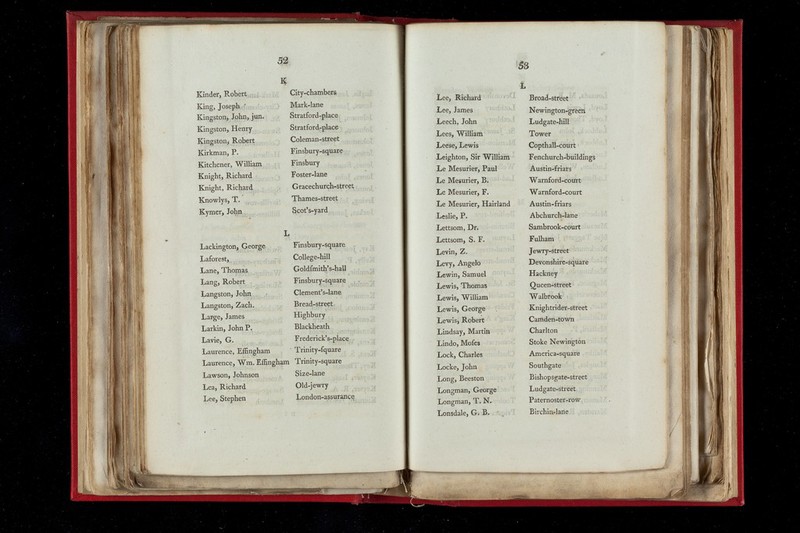 52
K
Kinder, Robert City-chambers
King, Joseph Mark-lane
Kingston, John, jun. Stratford-place
Kingston, Henry Stratford-place
Kingston, Robert Coleman-street
Kirkman, P. Finsbury-square
Kitchener, William Finsbury
Knight, Richard Foster-lane
Knight, Richard Gracechurch-street
Knowlys, T. Thames-street
Kymer, John Scot's-yard
L
Lackington, George Finsbury-square
Laforest, College-hill
Lane, Thomas Goldſmith's-hall
Lang, Robert Finsbury-square
Langston, John Clement's-lane
Langston, Zach. Bread-street.
Large, James Highbury
Larkin, John P. Blackheath
Lavie, G. Frederick's-place
Laurence, Effingham Trinity-ſquare
Laurence, Wm. Effingham Trinity-square
Lawson, Johnson Size-lane
Lea, Richard Old-jewry
Lee, Stephen London-assurance
53
L
Lee, Richard Broad-street
Lee, James Newington-green
Leech, John Ludgate-hill
Lees, William Tower
Leese, Lewis Copthall-court
Leighton, Sir William Fenchurch-buildings
Le Mesurier, Paul Austin-friars
Le Mesurier, B. Warnford-court
Le Mesurier, F. Warnford-court
Le Mesurier, Hairland Austin-friars
Leslie, P. Abchurch-lane
Lettsom, Dr. Sambrook-court
Lettsom, S. F. Fulham
Levin, Z. Jewry-street
Levy, Angelo Devonshire-square
Lewin, Samuel Hackney
Lewis, Thomas Queen-street
Lewis, William Walbrook
Lewis, George Knightrider-street
Lewis, Robert Camden-town
Lindsay, Martin Charlton
Lindo, Moſes Stoke Newington
Lock, Charles America-square
Locke, John Southgate
Long, Beeston Bishopsgate-street
Longman, George Ludgate-street
Longman, T. N. Paternoster-row
Lonsdale, G. B. Birchin-lane